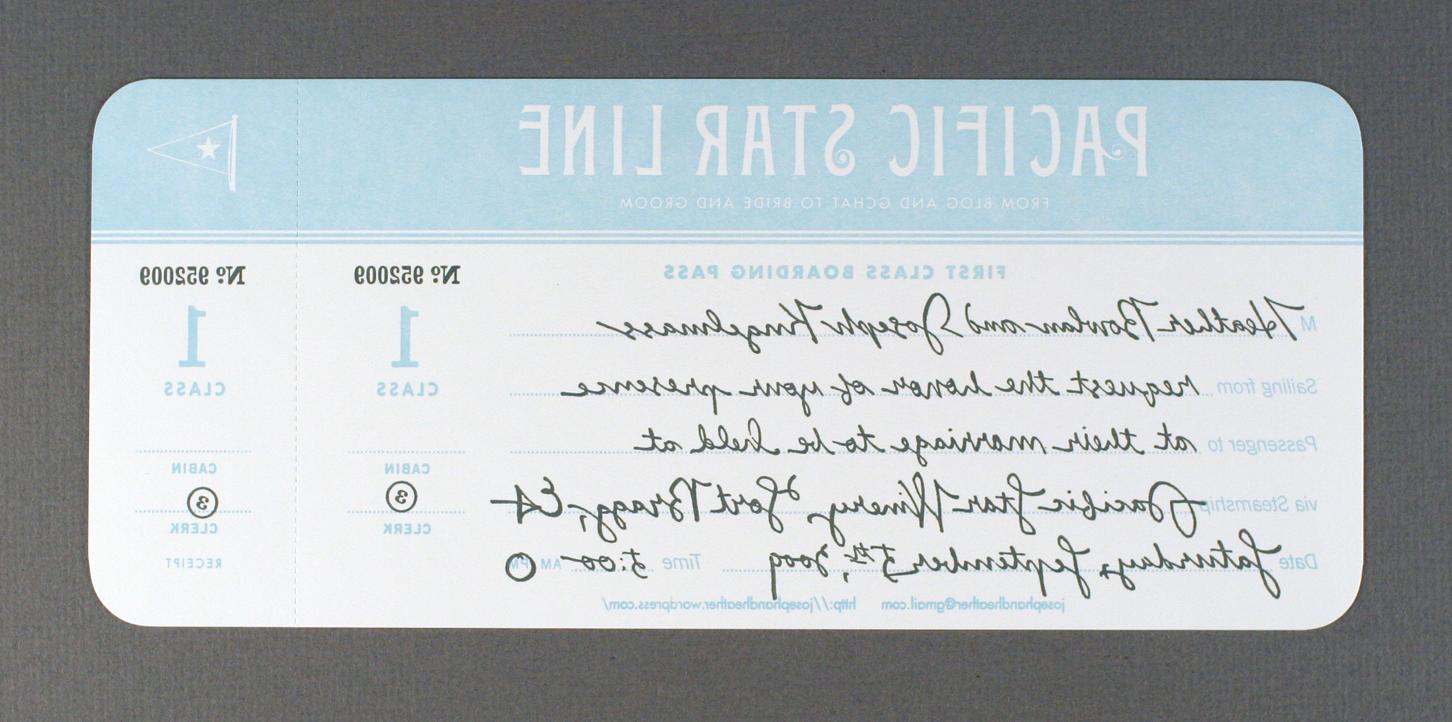 PACIFIC STAR LINE
FROM BLOG AND GCHAT TO BRIDE AND GROOM
FIRST CLASS BOARDING PASS
M Heather Bowlan and Joseph Kingelmass
Sailing from request the honor of your presence
Passenger to at their marriage to be held at
via Steamship Pacific Star Winery, Fort Bragg, CA
Date Saturday, September 5th, 2009 Time 5:00 AM PM
josephandheather@gmail.com http://josephandheather.wordpress.com/
Nº 952009
1
CLASS
CABIN
3
CLERK
Nº 952009
1
CLASS
CABIN
3
CLERK
RECEIPT